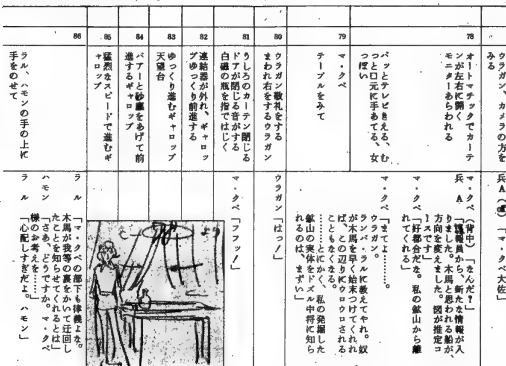 ウラガン、カメラの方を
みる
兵A(声)「マ・クベ大佐」
78
オートマチックでカーテ
ンが左右に開く
モニターあらわれる
マ・クベ(背中)「なんだ?」
兵 A「諜報員から、新たな情報が入
りました。木馬と思われる船が、
方向を変えました。図が推定コ
ースです」
マ・クベ「好都合だな。私の鉱山から離
れてくれる」
パッとテレビきえる、む
っと口元に手あてる、女
っぽい
79
マ・クベ
テーブルをみて
マ・クベ「まてよ……。
ウラガン。
ランバ・ラルに教えてやれ。奴
が木馬を早く始末つけてくれれ
ば、この辺りにウロウロされる
こともなくなる。
……とにかく、私の発掘した
鉱山の実体をドズル中将に知ら
れるのは、まずい」
80
ウラガン敬礼をする
まわれ右をするウラガン
ウラガン「はっ!」
81
うしろのカーテン閉じる
ドアが閉じる音がする
白磁の瓶を指ではじく
マ・クベ「フフッ!」
82
連結器が外れ、ギャロッ
プゆっくり前進する
83
ゆっくり進むギャロップ
天望台
84
バアーと砂塵をあげて前
進するギャロップ
85
猛烈なスピードで進むギ
ャロップ
86
ラル、ハモンの手の上に
手をのせて
ラル「マ・クベの部下も律儀よな。
木馬が我等の裏をかいて迂回し
たことを知らせてくれるとは」
ハモン「さあ、どうですか。マ・クベ
様のお考えを……」
ラル「心配しすぎだよ。ハモン」